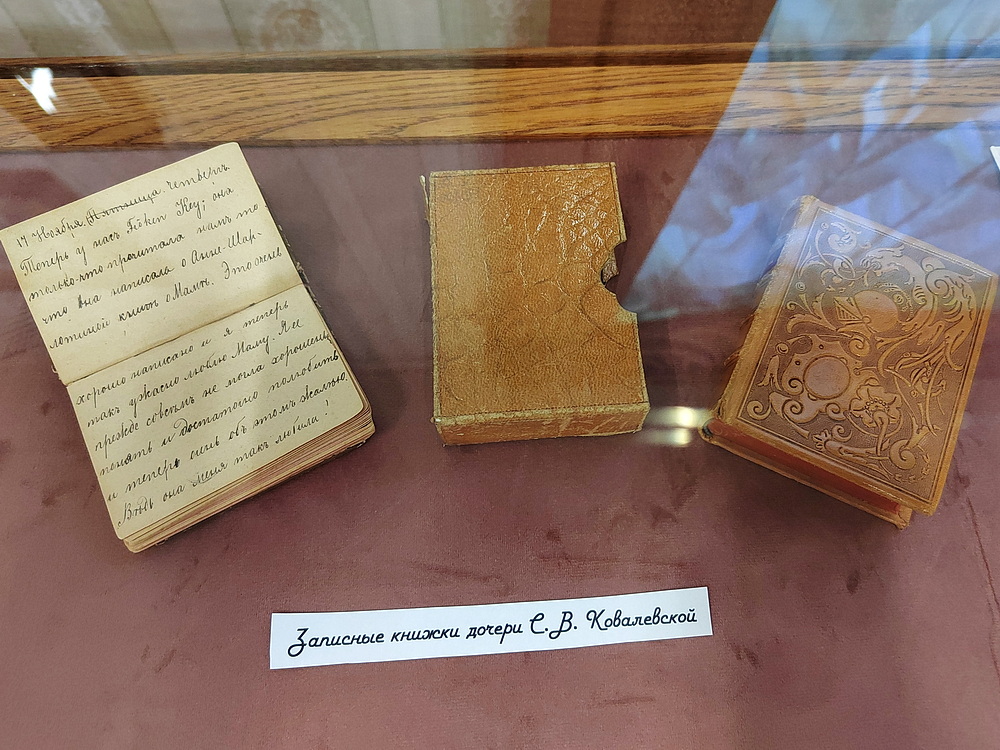 17 Ноября, Пятница. четвергъ.
Теперь у насъ Ellen Key; она
только-что прочитала намъ то
что она написала о Аннѣ-Шар-
лотиной книгѣ о Мамѣ. Это очень
хорошо написано и я теперь
такъ ужасно люблю Маму. Я ее
прежде совсѣмъ не могла хорошень
понять и достаточно полюбить
и теперь очень объ этомъ жалѣю.
Вѣдь она меня такъ любила!
Записные книжки дочери С. В. Ковалевской